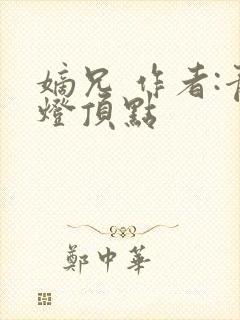 嫡兄 作者:青
燈頂點
鄭中華